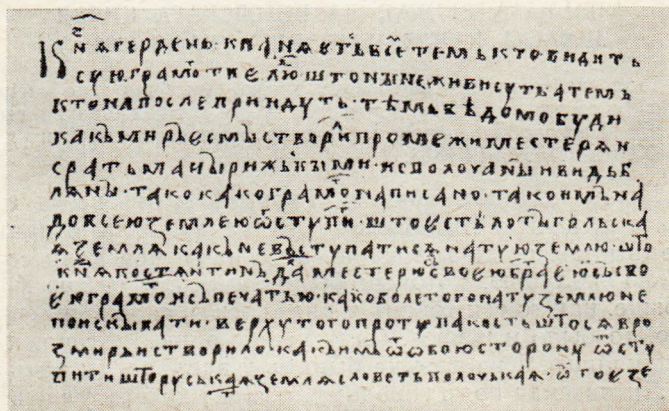 Кнѧ҃з Герденъ · кланѧеть всѣ тѣмъ кто видить
сую грамоⷮ тие люⷣ што нынѣ живи суть а темъ
кто напосле приидуть · тѣмъ вѣдомо буди
какъ миръ есмы створиⷧи промежи местерѧ и
с ратьманы рижьскыми · и с полочаны и видьб
лѧны · тако како грамоⷮ написано · тако имъ на
до всею землею ѿступиⷮ · што есть лотыгольска
ѧ землѧ какъ не въступатисѧ на тую землю · што
кнѧⷥ костѧнтинъ даⷧ местерю съ своею браⷮею съ сво
ею грамоⷮ и съ печатью · како боле того на ту землю не
поискывати · верху того про ту пакость што сѧ в ро
змирьи створило · какъ имъ ѿ ѡбою сторону ѿсту
пити што руськаѧ землѧ словеть полочьскаѧ · ѿ тое зе